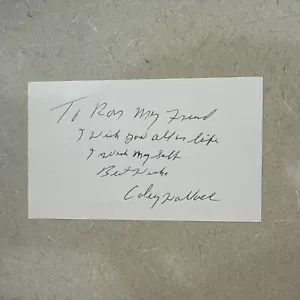 To Ron My Friend
I wish you all in life
I wish myself
Best Wishes
Coley Wallace